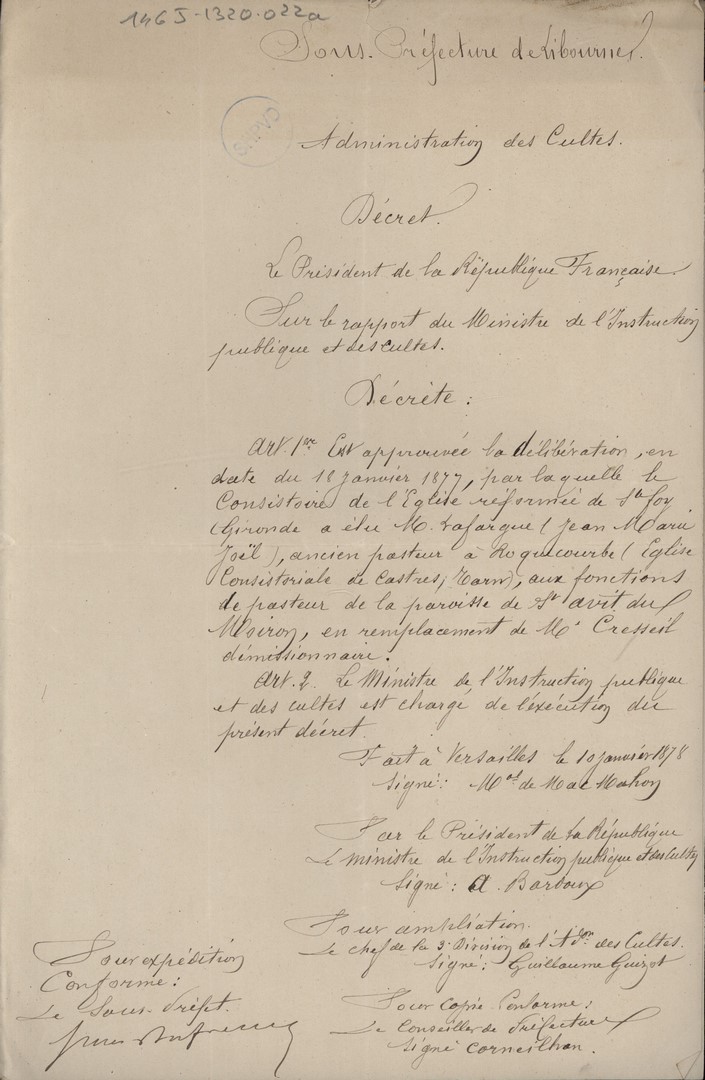 146 J-1320-022a
Sous-Préfecture de Libourne
SHPVD
Administration des Cultes.
Décret.
Le Président de la République Française
Sur le rapport du Ministre de l'Instruction
publique et des cultes.
Décrète :
Art. 1er Est approuvée la délibération, en
date du 18 janvier 1877, par laquelle le
Consistoire de l'Eglise réformée de Ste foy
(Gironde a élu M. Lafargue (Jean Marie
Joël), ancien pasteur à Roquecourbe (Eglise
Consistoriale de Castres, Tarn), aux fonctions
de pasteur de la paroisse de St avit du
Moiron, en remplacement de Mr Cresseil
démissionnaire.
Art. 2. Le Ministre de l'Instruction publique
et des cultes est chargé de l'éxécution du
présent décret.
Fait à Versailles le 10 janvier 1878
Signé : Mal de Mac Mahon
Par le Président de la République
Le ministre de l'Instruction publique et des Cultes
Signé : A. Bardoux
Pour ampliation.
Le chef de la 3e Division de l'Adon des Cultes.
Signé : Guillaume Guizot
Pour expédition
Conforme :
Le Sous-Préfet.
Pour copie Conforme :
Le Conseiller de Préfecture
Signé Corneilhan.